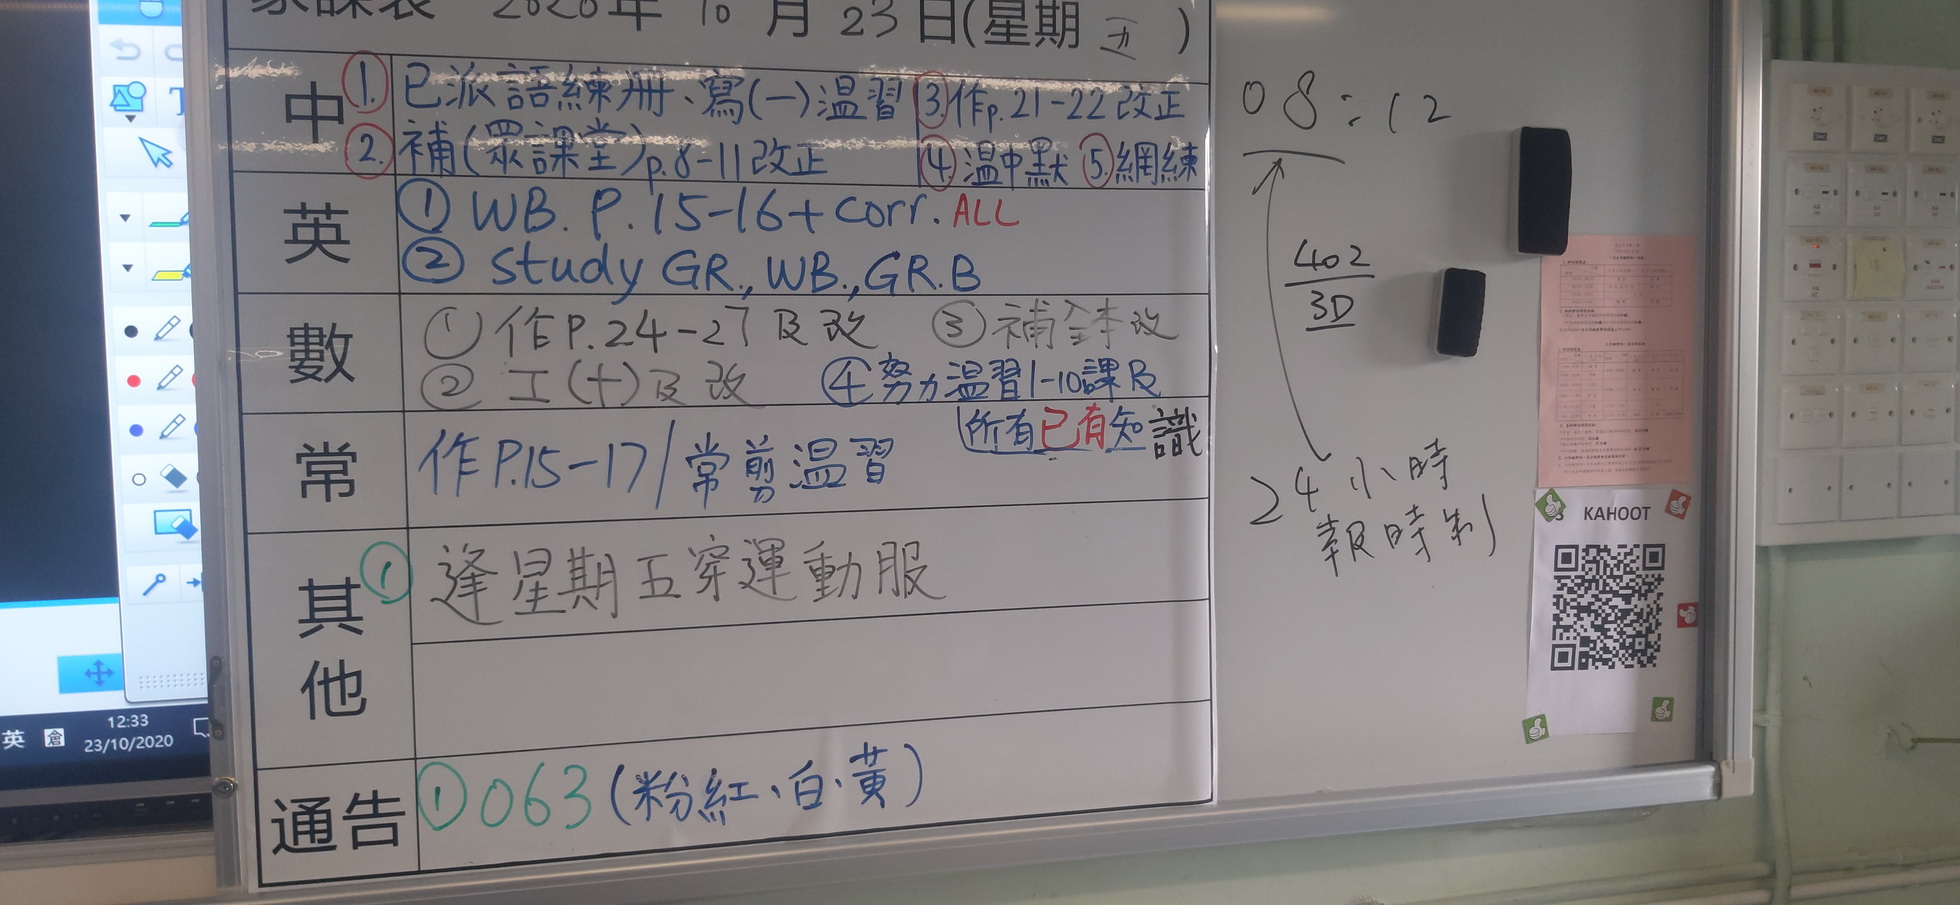 家課表 2020年10月23日(星期五)
中
1. 已派語練冊、寫(一)温習
2. 補(眾課堂)p.8-11改正
3. 作p.21-22改正
4. 温中默 5. 網練
英
① WB. P. 15-16 + corr. ALL
② study GR., WB., GR.B
數
① 作P.24-27及改 ③ 補全本改
② 工(十)及改 ④ 努力温習1-10課及
所有已有知識
常
作P.15-17/常剪温習
其他
① 逢星期五穿運動服
通告
① 063 (粉紅、白、黃)
08:12
402
3D
24小時
報時制
KAHOOT
英 倉
12:33
23/10/2020